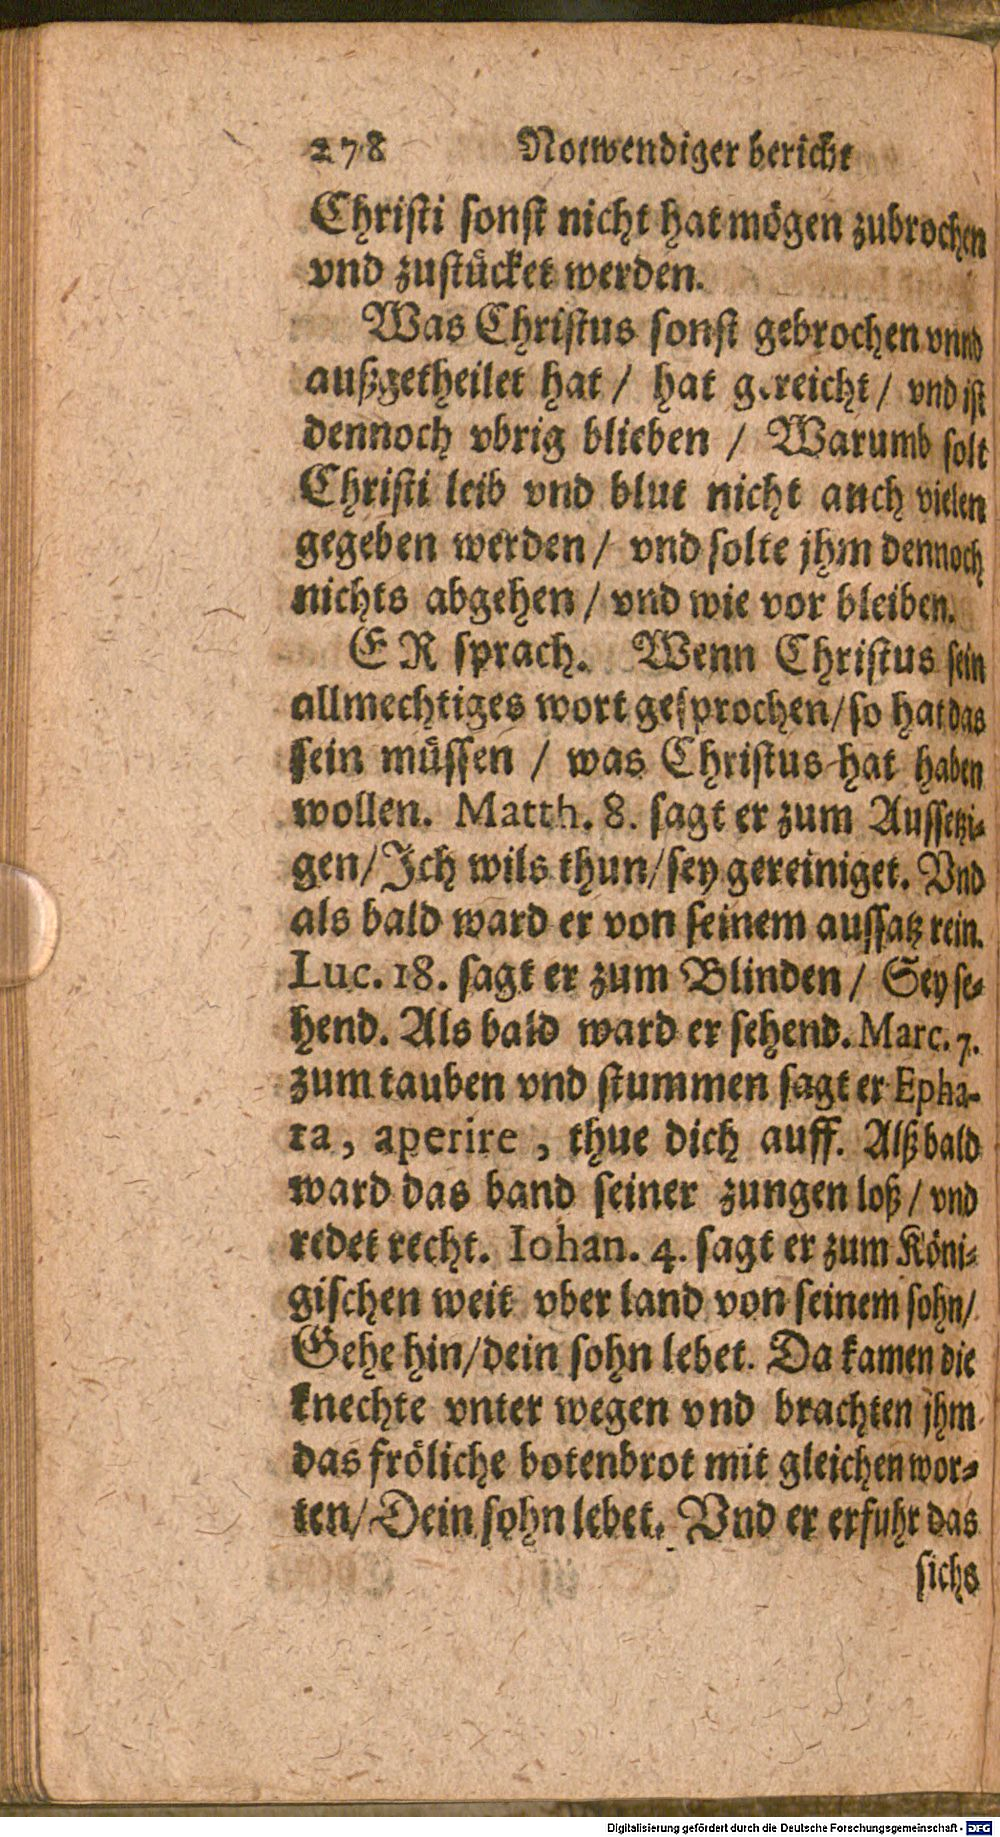 278 Notwendiger bericht
Christi sonst nicht hat mögen zubrochen
vnd zustücket werden.
Was Christus sonst gebrochen vnnd
außgetheilet hat / hat gereicht / vnd ist
dennoch vbrig blieben / Warumb solt
Christi leib vnd blut nicht auch vielen
gegeben werden / vnd solte jhm dennoch
nichts abgehen / vnd wie vor bleiben.
ER sprach. Wenn Christus sein
allmechtiges wort gesprochen / so hat das
sein müssen / was Christus hat haben
wollen. Matth. 8. sagt er zum Aussetzi-
gen / Ich wils thun / sey gereiniget. Vnd
als bald ward er von seinem aussatz rein.
Luc. 18. sagt er zum Blinden / Sey se-
hend. Als bald ward er sehend. Marc. 7.
zum tauben vnd stummen sagt er Epha-
ta, aperire, thue dich auff. Alß bald
ward das band seiner zungen loß / vnd
redet recht. Iohan. 4. sagt er zum Köni-
gischen weit vber land von seinem sohn /
Gehe hin / dein sohn lebet. Da kamen die
knechte vnter wegen vnd brachten jhm
das fröliche botenbrot mit gleichen wor-
ten / Dein sohn lebet. Vnd er erfuhr das
sichs
Digitalisierung gefördert durch die Deutsche Forschungsgemeinschaft - DFG